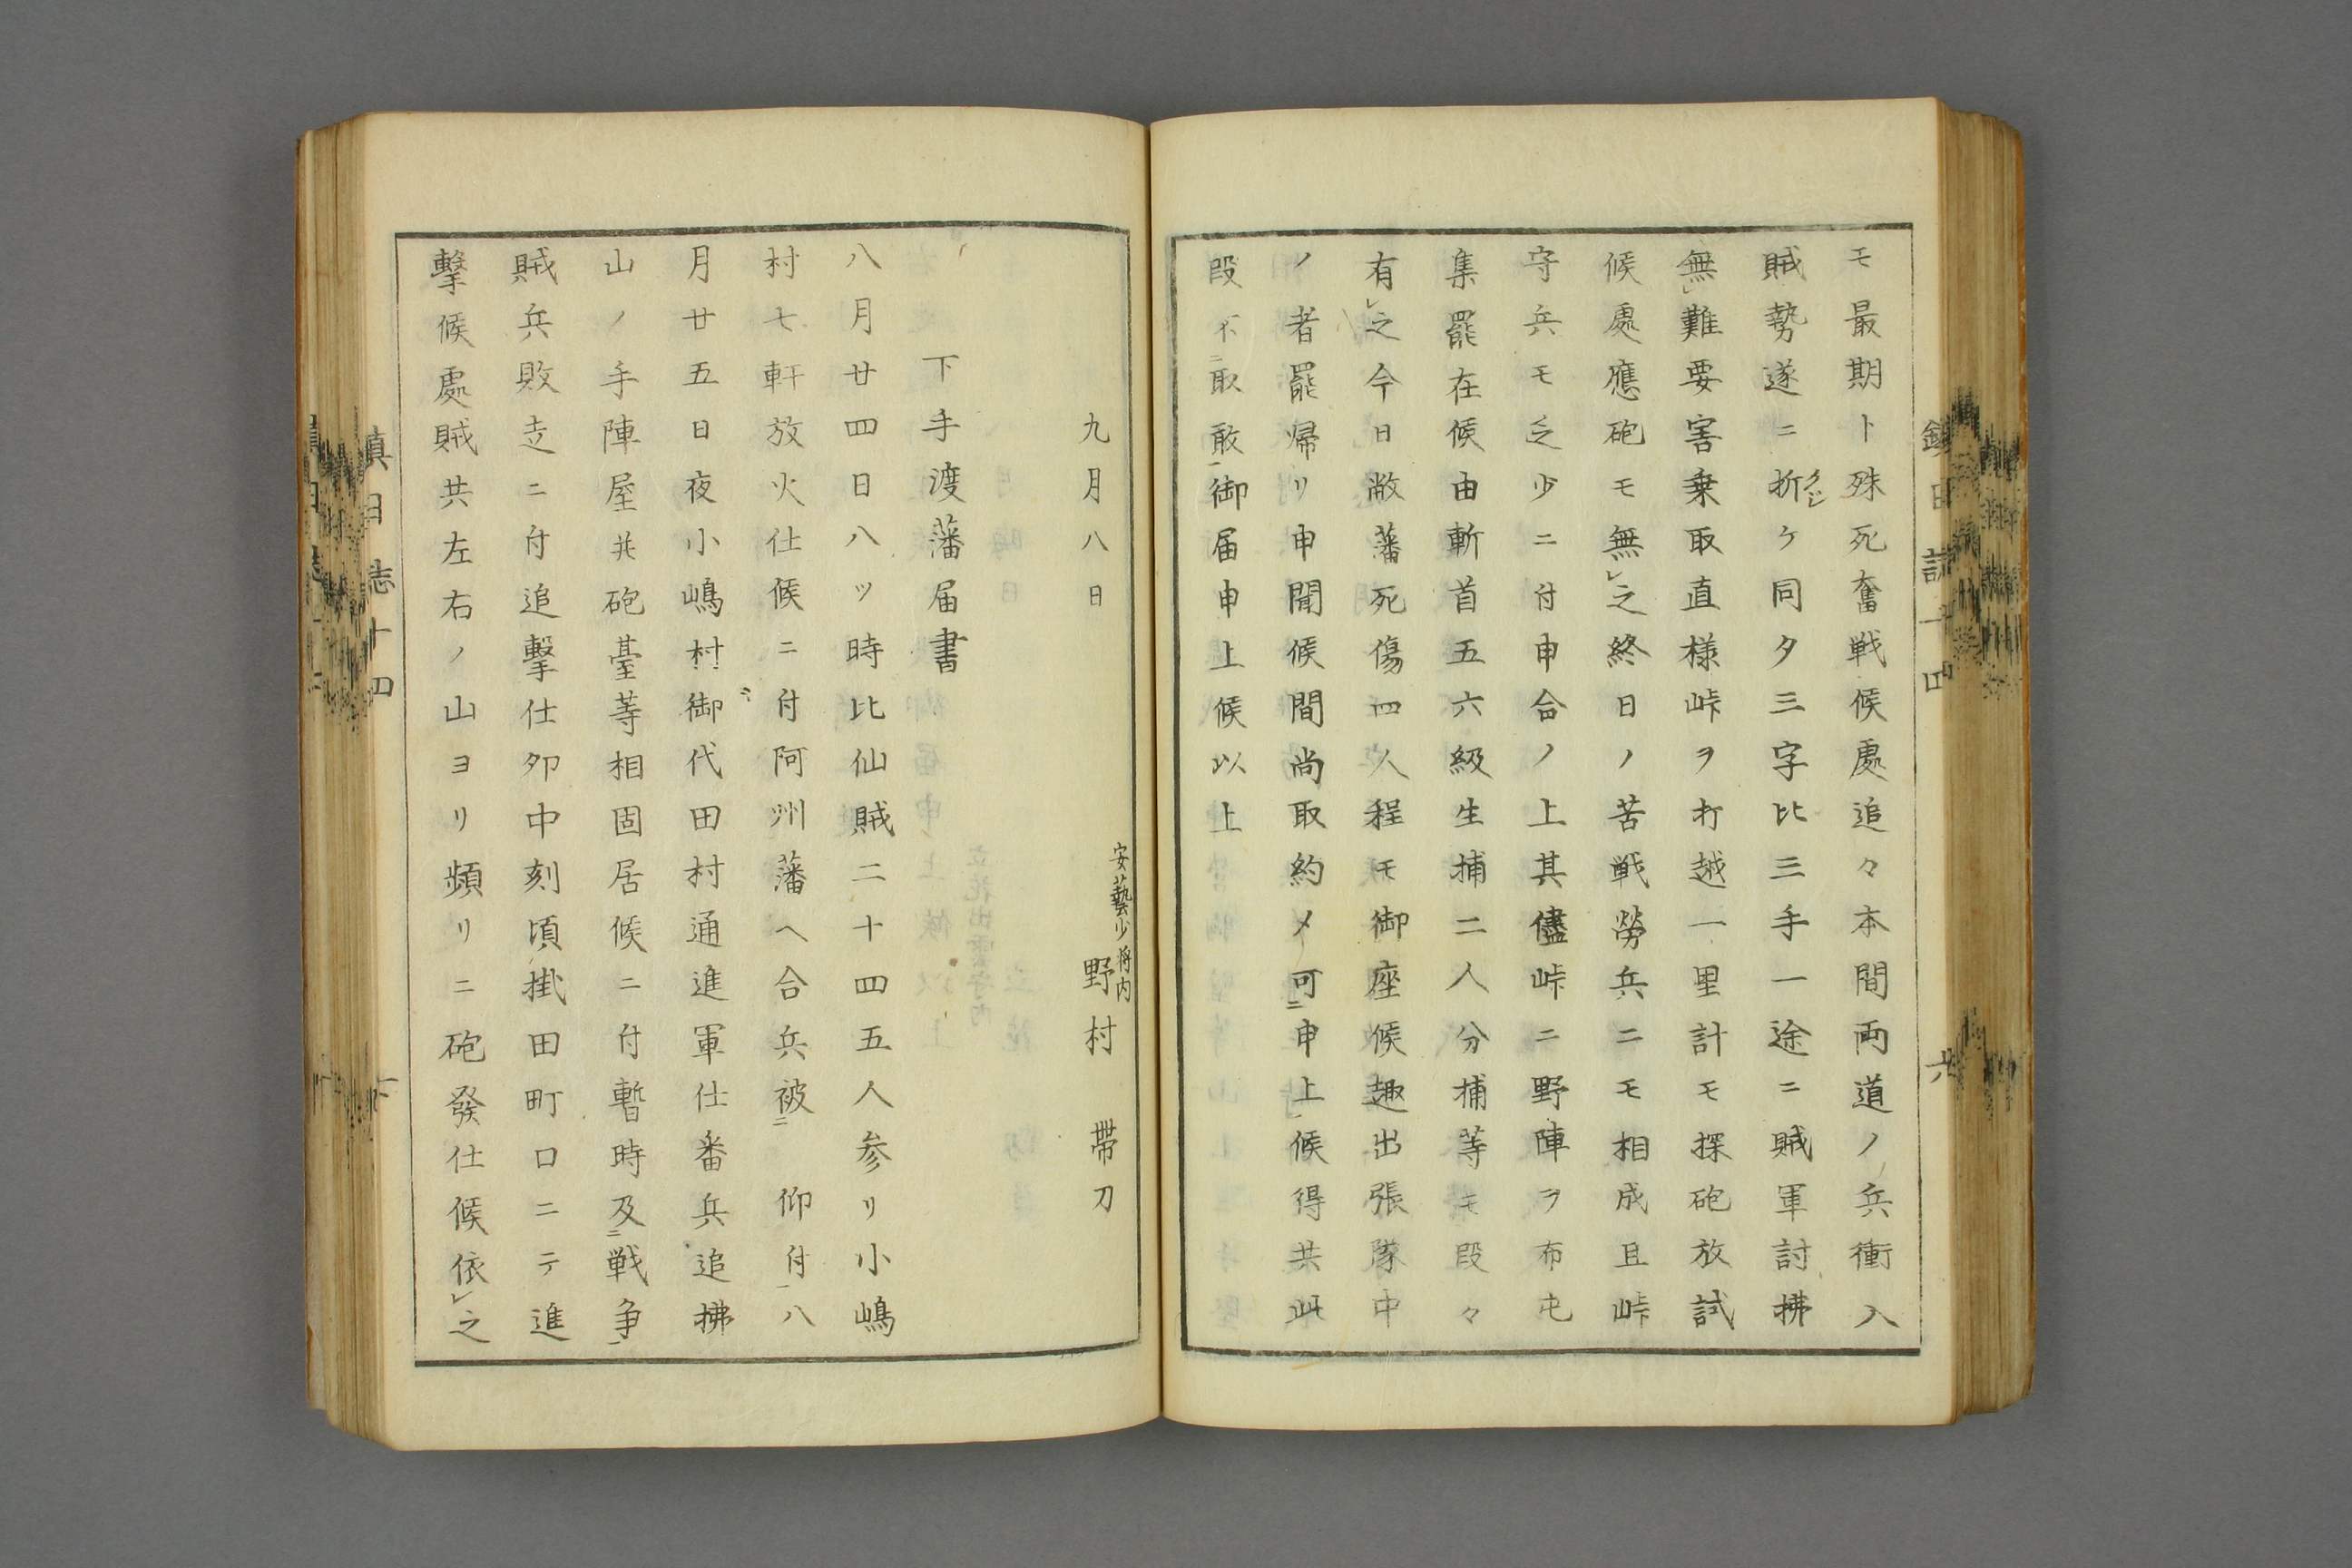 モ最期ト殊死奮戦候處追々本間両道ノ兵衝入
賊勢遂ニ折ケ同夕三字比三手一途ニ賊軍討拂
クジ
無レ難要害乗取直様峠ヲ打越一里計モ探砲放試
候處應砲モ無レ之終日ノ苦戦勞兵ニモ相成且峠
守兵モ乏少ニ付申合ノ上其儘峠ニ野陣ヲ布屯
集罷在候由斬首五六級生捕二人分捕等モ段々
有レ之今日敝藩死傷四人程モ御座候趣出張隊中
ノ者罷帰リ申聞候間尚取約メ可二申上一候得共此
段不二取敢一御届申上候以上
九月八日
安藝少将内
野村帯刀
下手渡藩届書
八月廿四日八ッ時比仙賊二十四五人参リ小嶋
村七軒放火仕候ニ付阿州藩ヘ合兵被二 仰付一八
月廿五日夜小嶋村御代田村通進軍仕番兵追拂
山ノ手陣屋共砲臺等相固居候ニ付暫時及二戦争一
賊兵敗走ニ付追撃仕夘中刻頃掛田町口ニテ進
撃候處賊共左右ノ山ヨリ頻リニ砲發仕候依レ之
鎮日誌十四
六
鎮日志十四